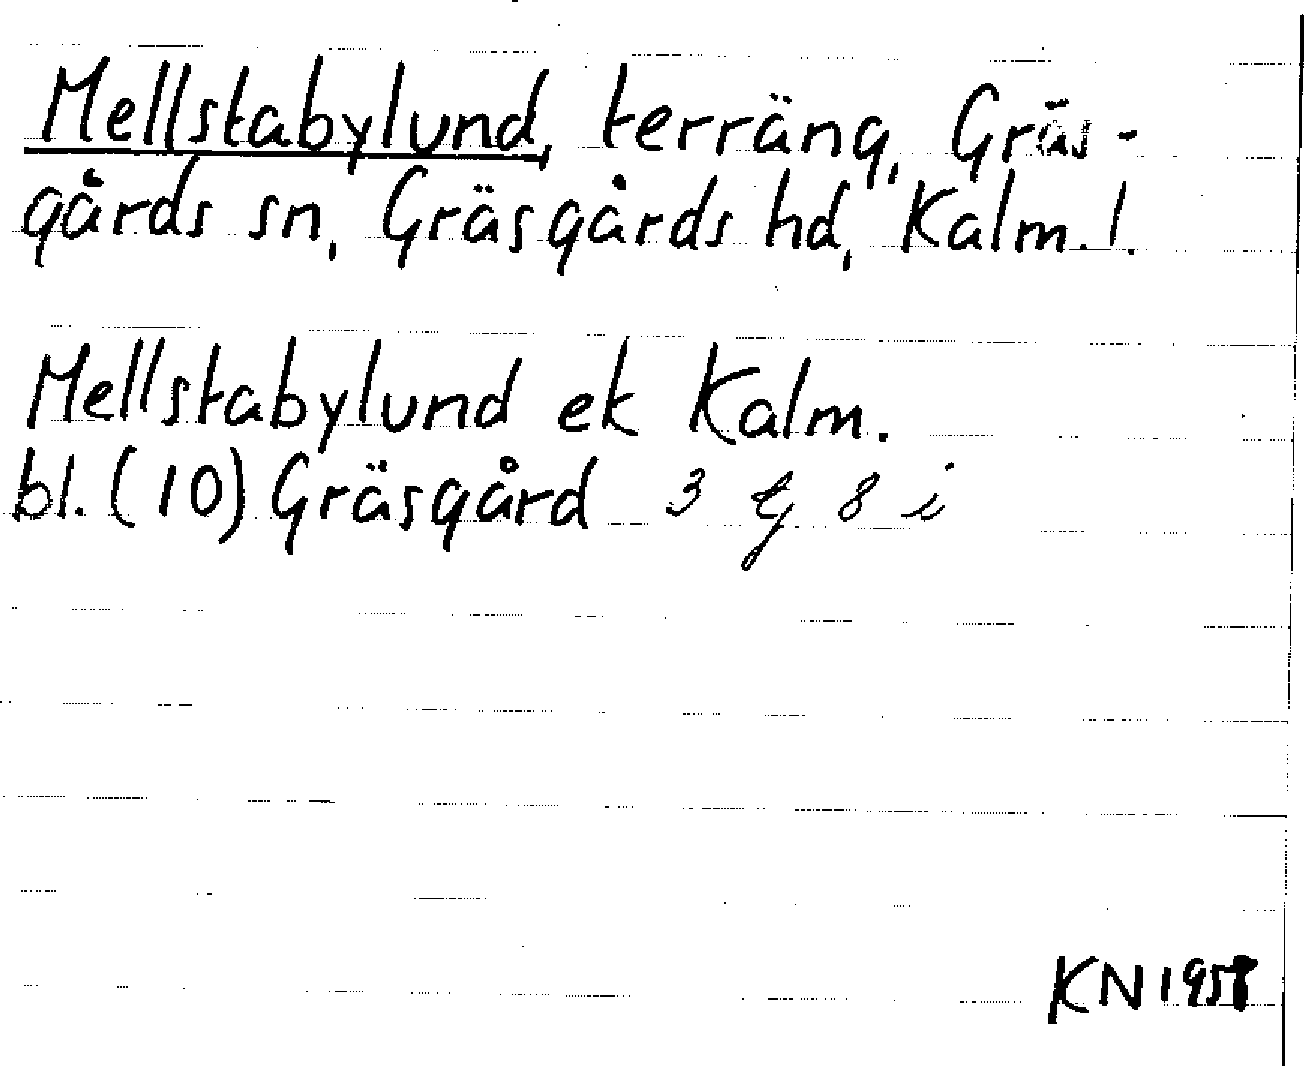 Mellstabylund, terräng, Gräs-
gårds sn, Gräsgårds hd, Kalm. l.
Mellstabylund ek Kalm.
bl. (10) Gräsgård 3 G 8 i
KN 1958